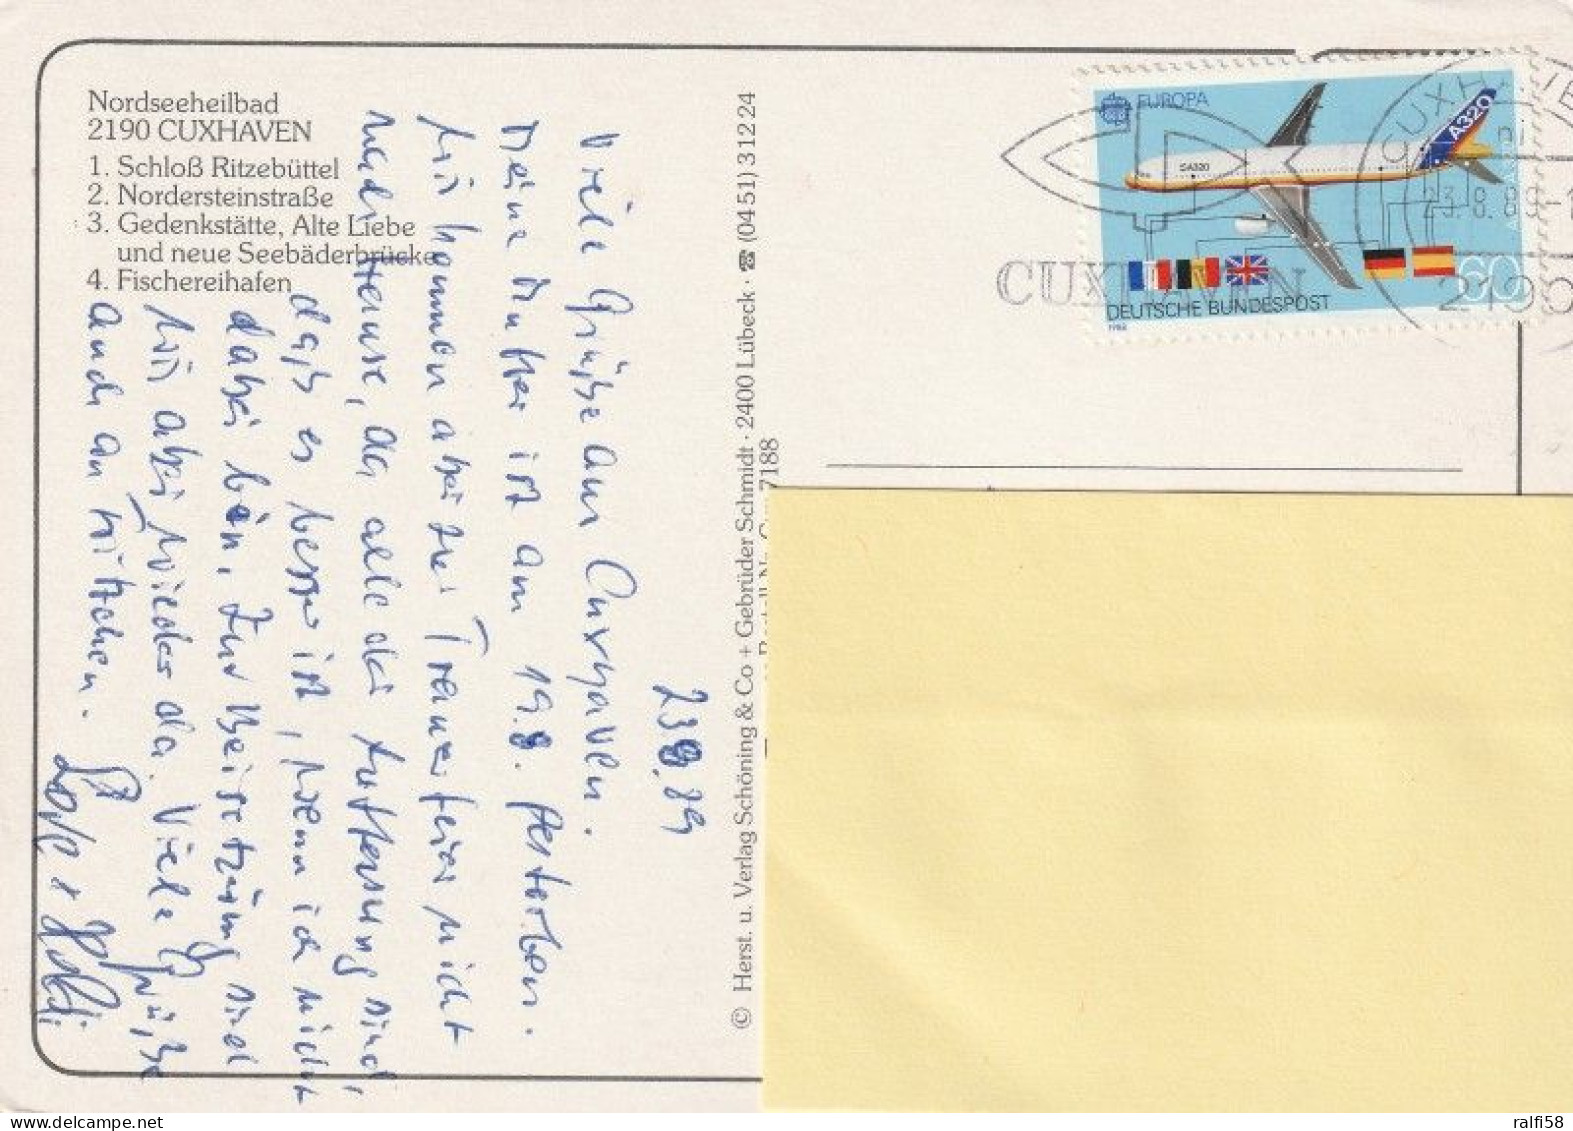 Nordseeheilbad
2190 CUXHAVEN
1. Schloß Ritzebüttel
2. Nordersteinstraße
3. Gedenkstätte, Alte Liebe
und neue Seebäderbrücke
4. Fischereihafen
23.8.89
Viele Grüße aus Cuxhaven.
Meine Mutter ist am 19.8. verstorben.
Wir kommen aber zur Trauerfeier nicht
nach Hause, da alle der Auffassung sind,
daß es besser ist, wenn ich nicht
dabei bin. Zur Beisetzung sind
wir aber wieder da. Viele Grüße
auch an
© Herst. u. Verlag Schöning & Co + Gebrüder Schmidt · 2400 Lübeck · ☎ (04 51) 3 12 24
7188
EUROPA
A320
DEUTSCHE BUNDESPOST
60
1988
CUXHAVEN
23.8.89
2190
ralfi58